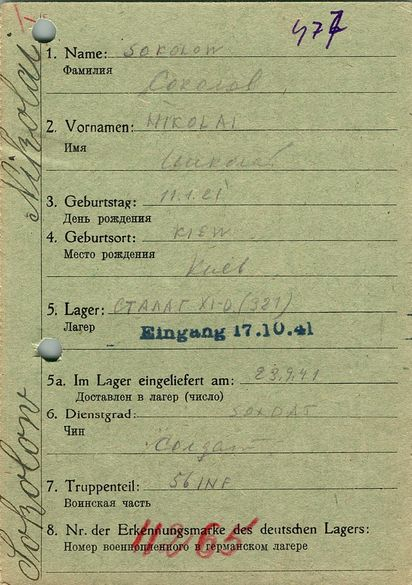 477
1. Name: SOKOLOW
Фамилия
Соколов,
2. Vornamen: NIKOLAI
Имя
Николай
3. Geburtstag: 11.1.21
День рождения
4. Geburtsort: KIEW
Место рождения
Киев
5. Lager: СТАЛАГ XI-D (321)
Лагер
Eingang 17.10.41
5a. Im Lager eingeliefert am: 23.9.41
Доставлен в лагер (число)
6. Dienstgrad: SOLDAT
Чин
Солдат
7. Truppenteil: 56 INF
Воинская часть
8. Nr. der Erkennungsmarke des deutschen Lagers:
Номер военнопленного в германском лагере
11265
Sokolow Nikolai